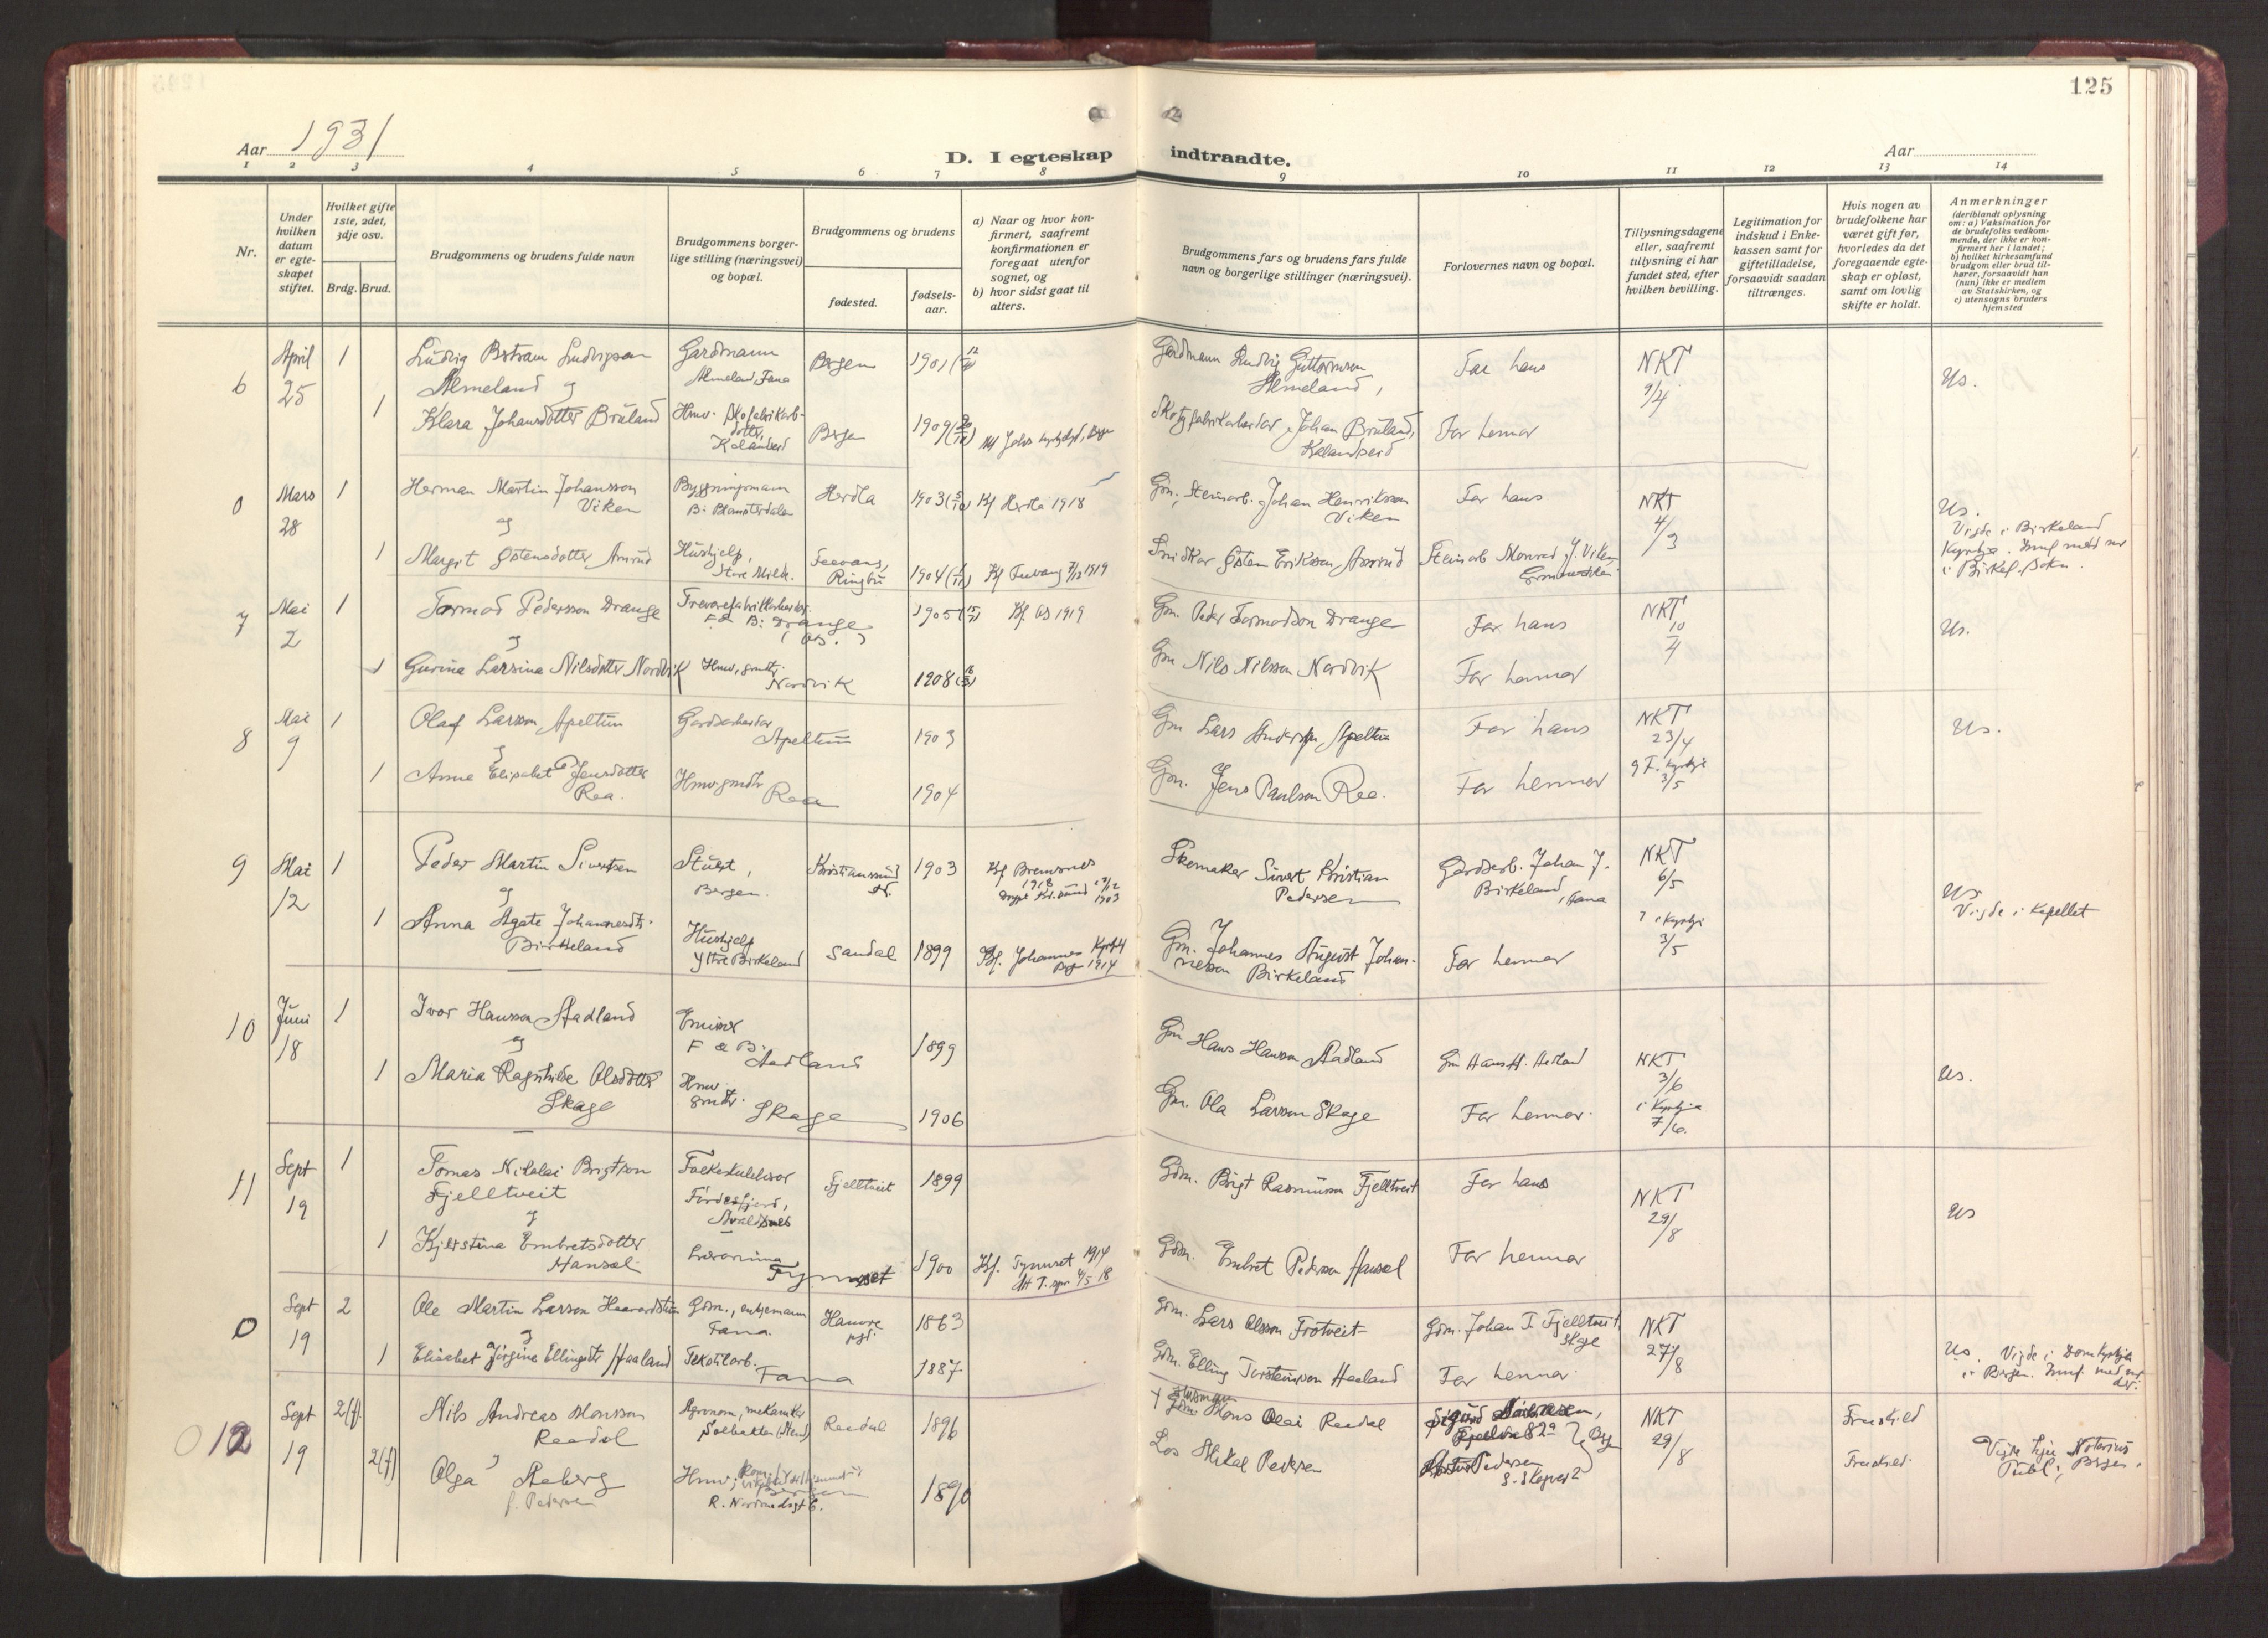 125
Aar 1931
D. I egteskap indtraadte.
Aar
1 2 3 4 5 6 7 8 9 10 11 12 13 14
Nr.
Under hvilken datum er egte-skapet stiftet.
Hvilket gifte 1ste, 2det, 3dje osv.
Brdg. Brud.
Brudgommens og brudens fulde navn
Brudgommens borger-lige stilling (næringsvei) og bopæl.
Brudgommens og brudens
fødested.
fødsels-aar.
a) Naar og hvor kon-firmert, saafremt konfirmationen er foregaat utenfor sognet, og
b) hvor sidst gaat til alters.
Brudgommens fars og brudens fars fulde navn og borgerlige stillinger (næringsvei).
Forlovernes navn og bopæl.
Tillysningsdagene eller, saafremt tillysning ei har fundet sted, efter hvilken bevilling.
Legitimation for indskud i Enke-kassen samt for giftetilladelse, forsaavidt saadan tiltrænges.
Hvis nogen av brudefolkene har været gift før, hvorledes da det foregaaende egte-skap er opløst, samt om lovlig skifte er holdt.
Anmerkninger
(deriblandt oplysning om: a) Vaksination for de brudefolks vedkom-mende, der ikke er kon-firmert her i landet; b) hvilket kirkesamfund brudgom eller brud til-hører, forsaavidt han (hun) ikke er medlem av Statskirken, og c) utensogns bruders hjemsted
6 April 25 1 Ludvig Bertram Ludvigson Almeland og
Gardmann Almeland, Fana Bergen 1901
Gardmann Ludvig Guttormson Almeland, Far hans NKT 9/4 Us.
1 Klara Johansdotter Bruland Hmv. skofabrikarb. dotter, Kalandseid Bergen 1909
Skotyfabrikarbeidar Johan Bruland, Kalandseid Far hennar
0 Mars 28 1 Herman Martin Johansson Viken og
Bygningsmann B: Blomsterdalen Herdla 1903 Kf Herdla 1918
Gm., Steinarb. Johan Henrikson Viken Far hans NKT 4/3 Us.
Vigde i Birkeland Kyrkja. Innf. med nr i Birkel. Sokn.
1 Margit Østensdotter Amrud Hushjelp, Store Milde. Ringbu 1904 Kf 1919
Smidkar Østen Erikson Amrud Steinarb Monrad J. Viken
7 Mai 2 1 Tormod Pedersson Drange og
Trevarefabrikkarbeidar. F & B: Drange (Os.) 1905 Kf. Os 1919
Gm. Peder Tormodson Drange Far hans NKT 10/4 Us.
1 Gurina Larsina Nilsdotter Nordvik Hmv., gmdtr. Nordvik 1908
Gm Nils Nilsson Nordvik Far hennar
8 Mai 9 1 Olaf Larsson Apeltun og
Gardsarbeidar Apeltun 1903
Gm Lars Anderson Apeltun Far hans NKT 23/4 Us.
1 Anna Elisabet Jensdotter Rea. Hmv gmdtr Rea 1904
Gm. Jens Paulson Rea. Far hennar 9 F. Kyrkje 3/5
9 Mai 12 1 Peder Martin Sivertsen og
Stuert, Bergen. Kristiansund N. 1903 Kf Bremsnes 1918
Skomaker Sivert Kristian Pedersen Gardsarb. Johan J. Birkeland, Fana NKT 6/5 Us
Vigde i Kapellet
1 Anna Agate Johannesdtr. Birkeland Hushjelp Ytre Birkeland Sandal 1899 Kf. Johannes Kyrkj Brgn 1914
Gm. Johannes August Johan-nesson Birkeland Far hennar 3/5
10 Juni 18 1 Ivar Hansson Aadland og
F & B: Aadland 1899
Gm Hans Hanson Aadland Gm Hans H. Aadland NKT 3/6 Us.
1 Maria Ragnhilde Olsdotter Skage Hmv gmdtr. Skage 1906
Gm. Ola Larson Skage Far hennar. i Kyrkja 7/6.
11 Sept 19 1 Tomas Nikolai Brigtson Fjelltveit og
Folkeskulelærar Førdesfjord, Avaldsnes Fjelltveit 1899
Gdm. Brigt Rasmusson Fjelltveit Far hans NKT 29/8 Us
1 Kjerstina Embretsdotter Hansæl Lærarinna Tynset 1900 Kf. Tynset 1914
Gdm. Embret Pederson Hansæl Far hennar
0 Sept 19 2 Ole Martin Larson Haavardstun og
Gdm., enkjemann Fana. Hamre pgd. 1863
Gdm. Lars Olsson Fotveit Gdm. Johan I Fjelltveit Skage NKT 27/8
1 Elisabet Jørgine Ellingsdtr Haaland Tekstilarb. Fana 1887
Gdm. Elling Torsteinson Haaland Far hennar Us. Vigde i Domkyrkja i Bergen. Innf. med nr der.
12 Sept 19 2(f) Nils Andreas Monsson Raadal og
Agronom, mekaniker Solbakken (Nesd) Raadal 1896
Gdm. Mons Olai Raadal NKT 29/8 Fraskild
2(f) Olga Raberg f. Pedersen Hmv; Bergen R. Nordraaksgt 6. 1890
Los Mikal Pedersen Pedersen Fraskild.
Vigde hjå Notarius Publ., Bergen.